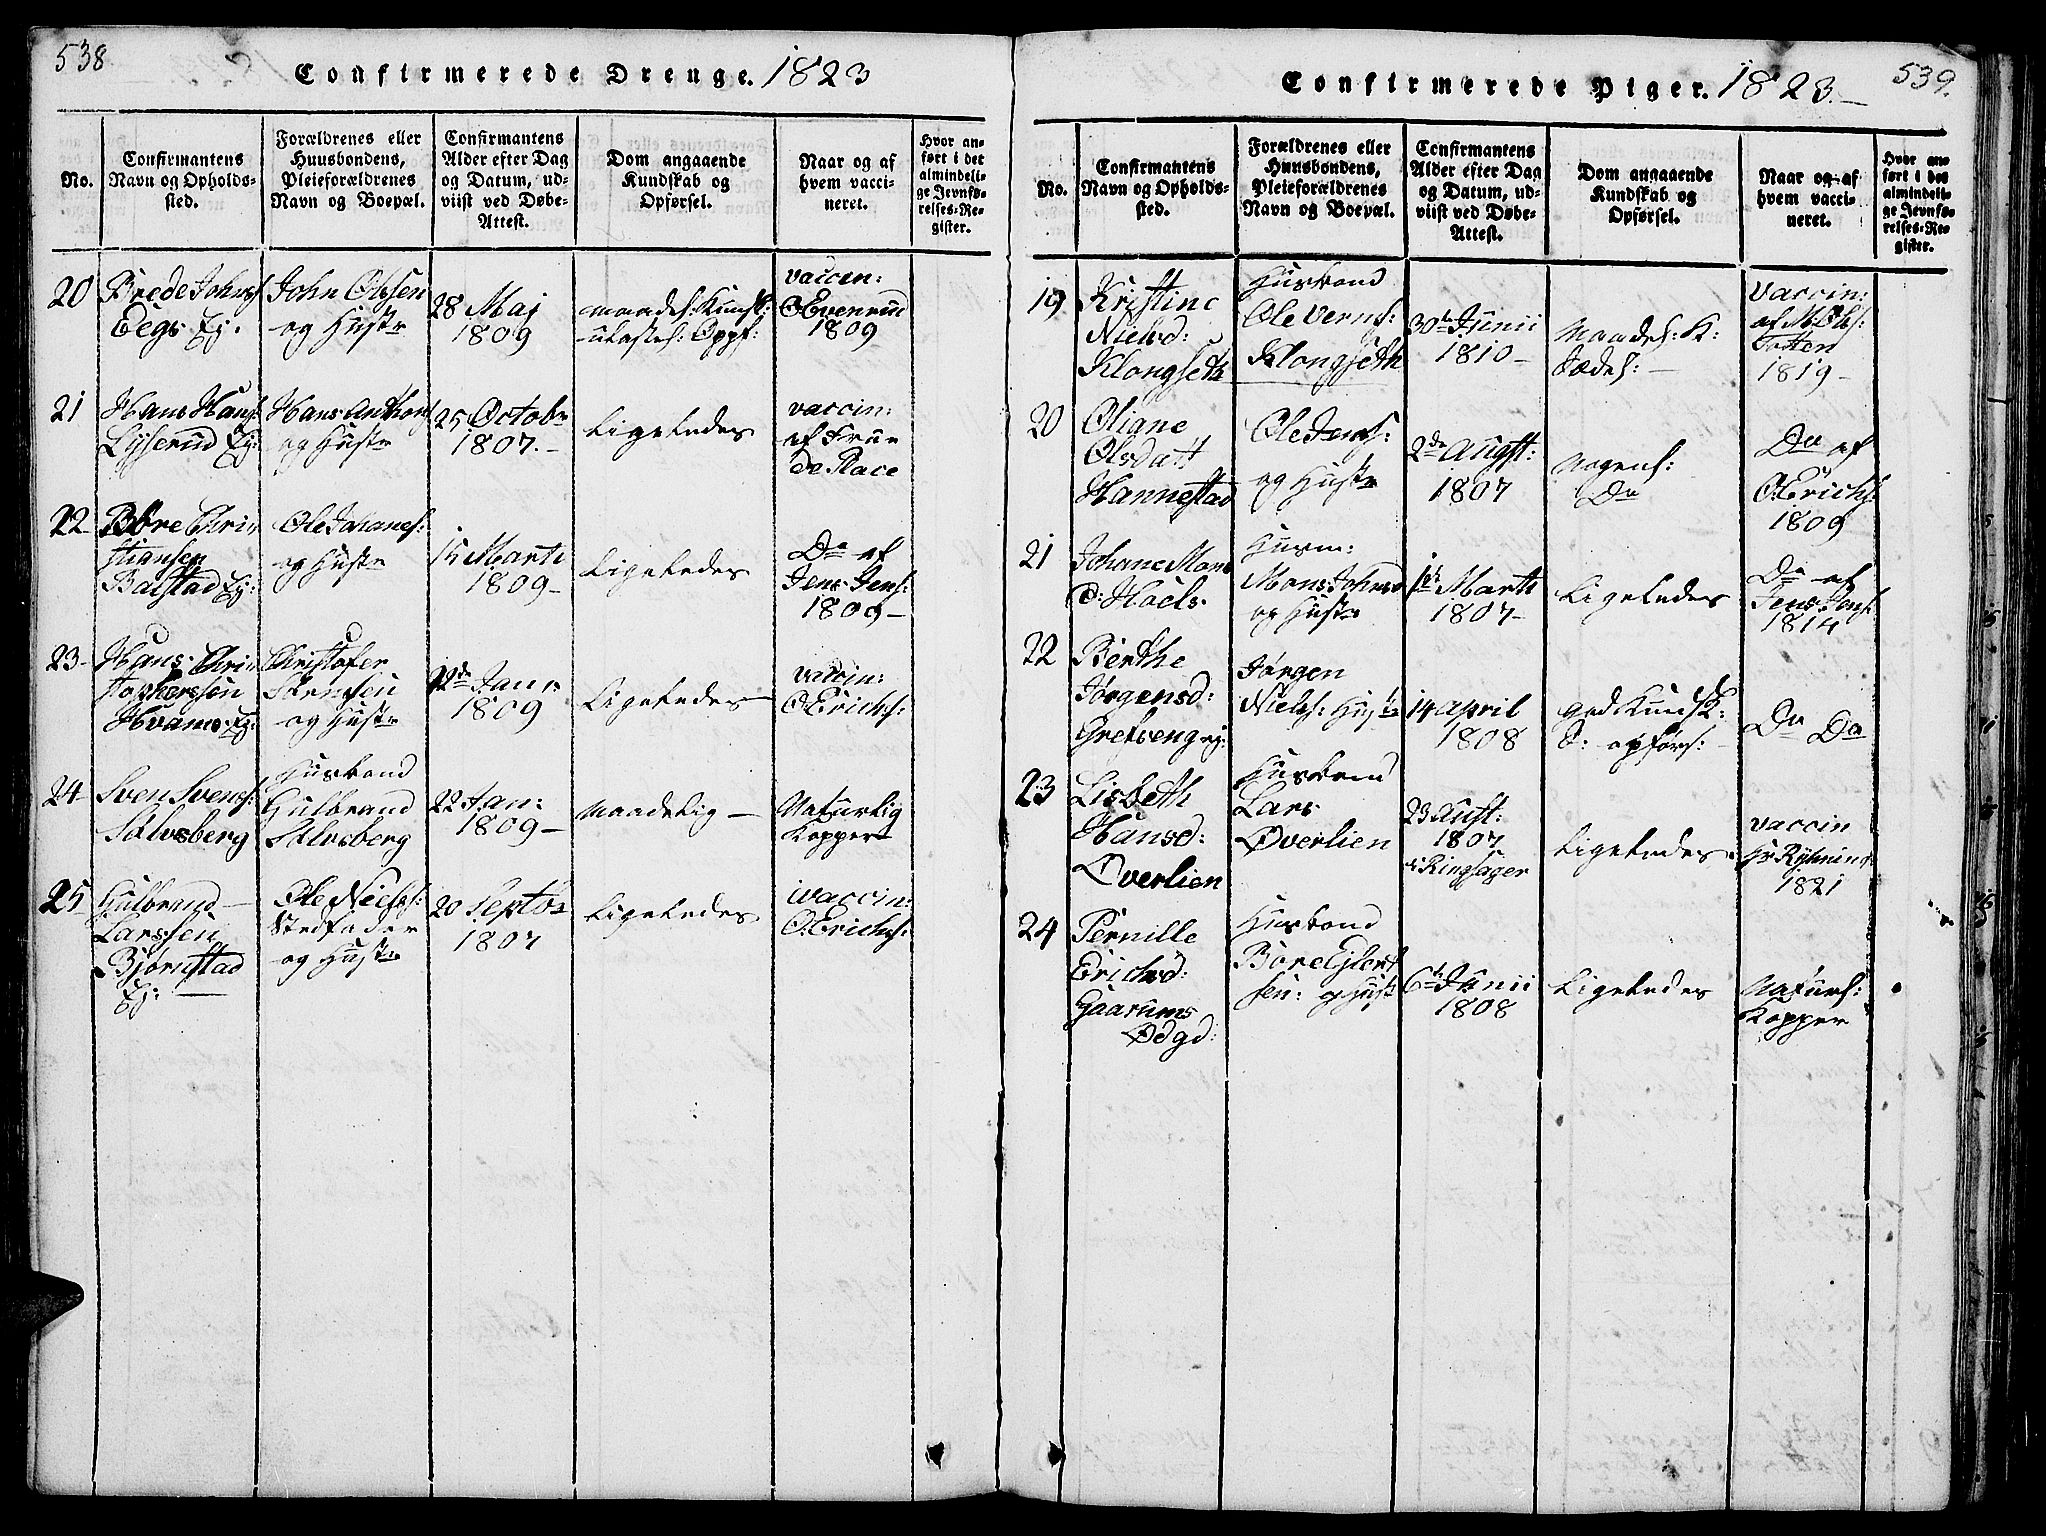 538
Confirmerede Drenge. 1823
No.
Confirmantens
Navn og Opholds-
sted.
Forældrenes eller
Huusbondens,
Pleieforældrenes
Navn og Boepæl.
Confirmantens
Alder efter Dag
og Datum, ud-
viist ved Døbe-
Attest.
Dom angaaende
Kundskab og
Opførsel.
Naar og af
hvem vacci-
neret.
Hvor an-
ført i det
almindeli-
ge Jevnfø-
relses-Re-
gister.
20
Brede Johns:
Eegs Ej.
John Olsen
og Hustr
28 Maj
1809
maadel: Kunsk:
ulastel: Oppf:
vaccin:
O Evenrud
1809
21
Hans Hans:
Lijserud Ej:
Hans Anthons
og Hustr
25 Octobr
1807.-
Ligeledes
vaccin:
af Frue
de Place
22
Børe Chri-
stiansen
Balstad Ej:
Ole Johanes:
og Hustr
15 Marti
1809-
Ligeledes
Do af
Jens Jens:
1809-
23-
Hans Chri-
stophersen
Hvams Ej:
Christofer
Sørensen
og Hustr
22de Jan:
1809
Ligeledes
vaccin:
O Erichs:
24-
Sven Svens:
Salvsberg
Husbond
Gulbrand
Salvsberg
22 Jan:
1809-
maadelig-
Naturlig
Kopper
25
Gulbrand-
Larssen
Bjørnstad
Ej:
Ole Niels:
Stedfader
og Hustr
20 Septbr
1807
Ligeledes
vaccin:
O: Erichs:
539.
Confirmerede Piger. 1823.-
No.
Confirmantens
Navn og Opholds-
sted.
Forældrenes eller
Huusbondens,
Pleieforældrenes
Navn og Boepæl.
Confirmantens
Alder efter Dag
og Datum, ud-
viist ved Døbe-
Attest.
Dom angaaende
Kundskab og
Opførsel.
Naar og af
hvem vacci-
neret.
Hvor an-
ført i det
almindeli-
ge Jevnfø-
relses-Re-
gister.
19
Kristine
Nielsd:
Klongseth
Husbond
Ole Verns:
Klongseth
30te Junii
1810-
Maadel: K:
Sædel:-
Vaccin:
af M Ols:
Totten
1819-
20
Oliane
Olsdatt
Hannestad
Ole Jens:
og Hustr
2de Augst:
1807
Nogenl:
Do
Do af
O Erichs:
1809
21
Johane Mons
D: Hoels
Husm:
Mons Johns:
og Hustr
1ste Marti
1807-
Ligeledes
Do af
Jens Jens:
1814
22
Berthe
Jørgensd:
Gretveng ej:
Jørgen
Niels: Hustr
14 April
1808
god Kundsk:
& opførs:
Do Do
23
Lisbeth
Hansd:
Øverlien
Husbond
Lars
Øverlien
23 Aust:
1807
i Ringsager
Ligeledes
vaccin
Hr Ryhning
1821
24
Pernille
Erichsd:
Gaarums
Ødgd:
Husbond
Bore Ejlert
sen: og Hust
6te Junii
1808
Ligeledes
Naturl:
Kopper